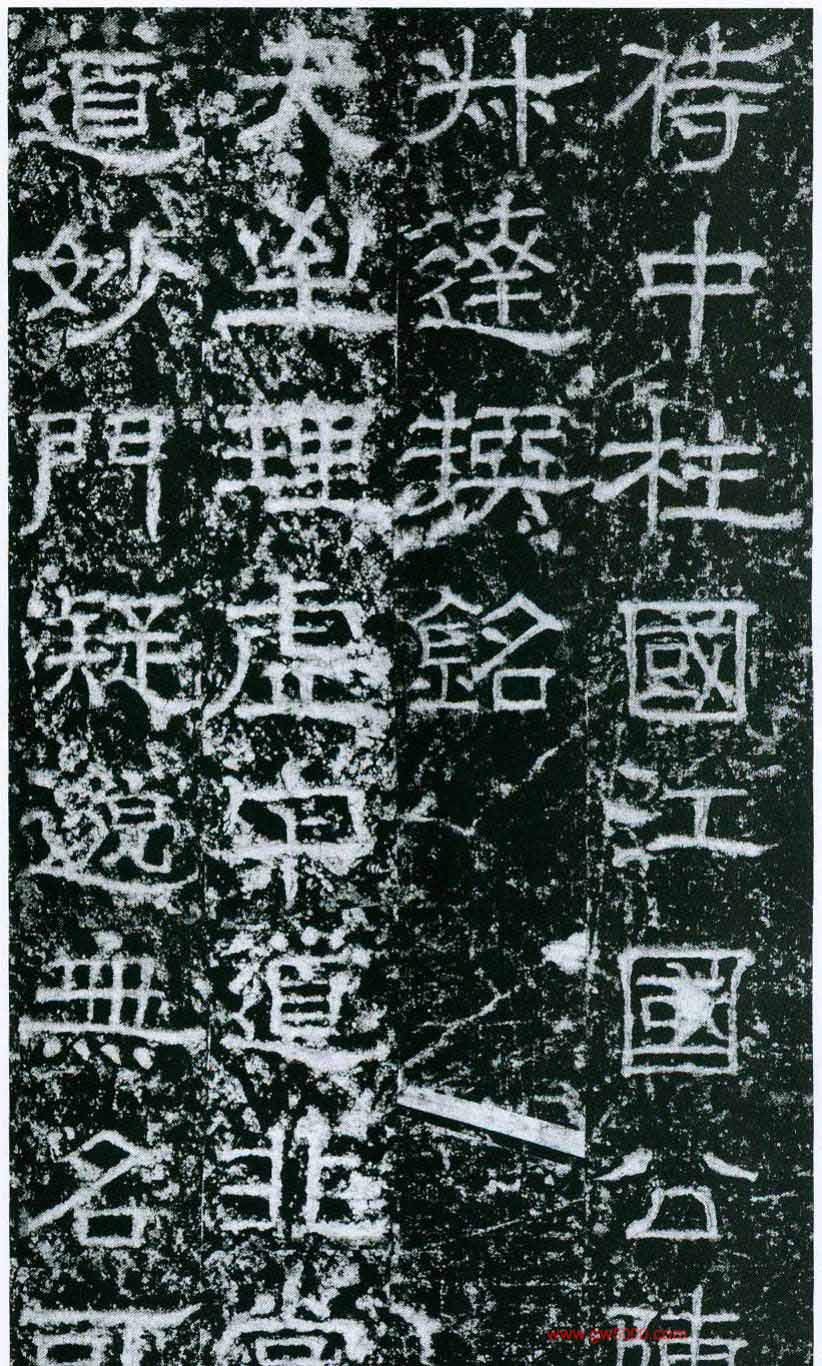 侍中柱國江國公陳
叔達撰銘
夫至理虛寂道非常
道妙門凝邈無名可
www.gwt000.com